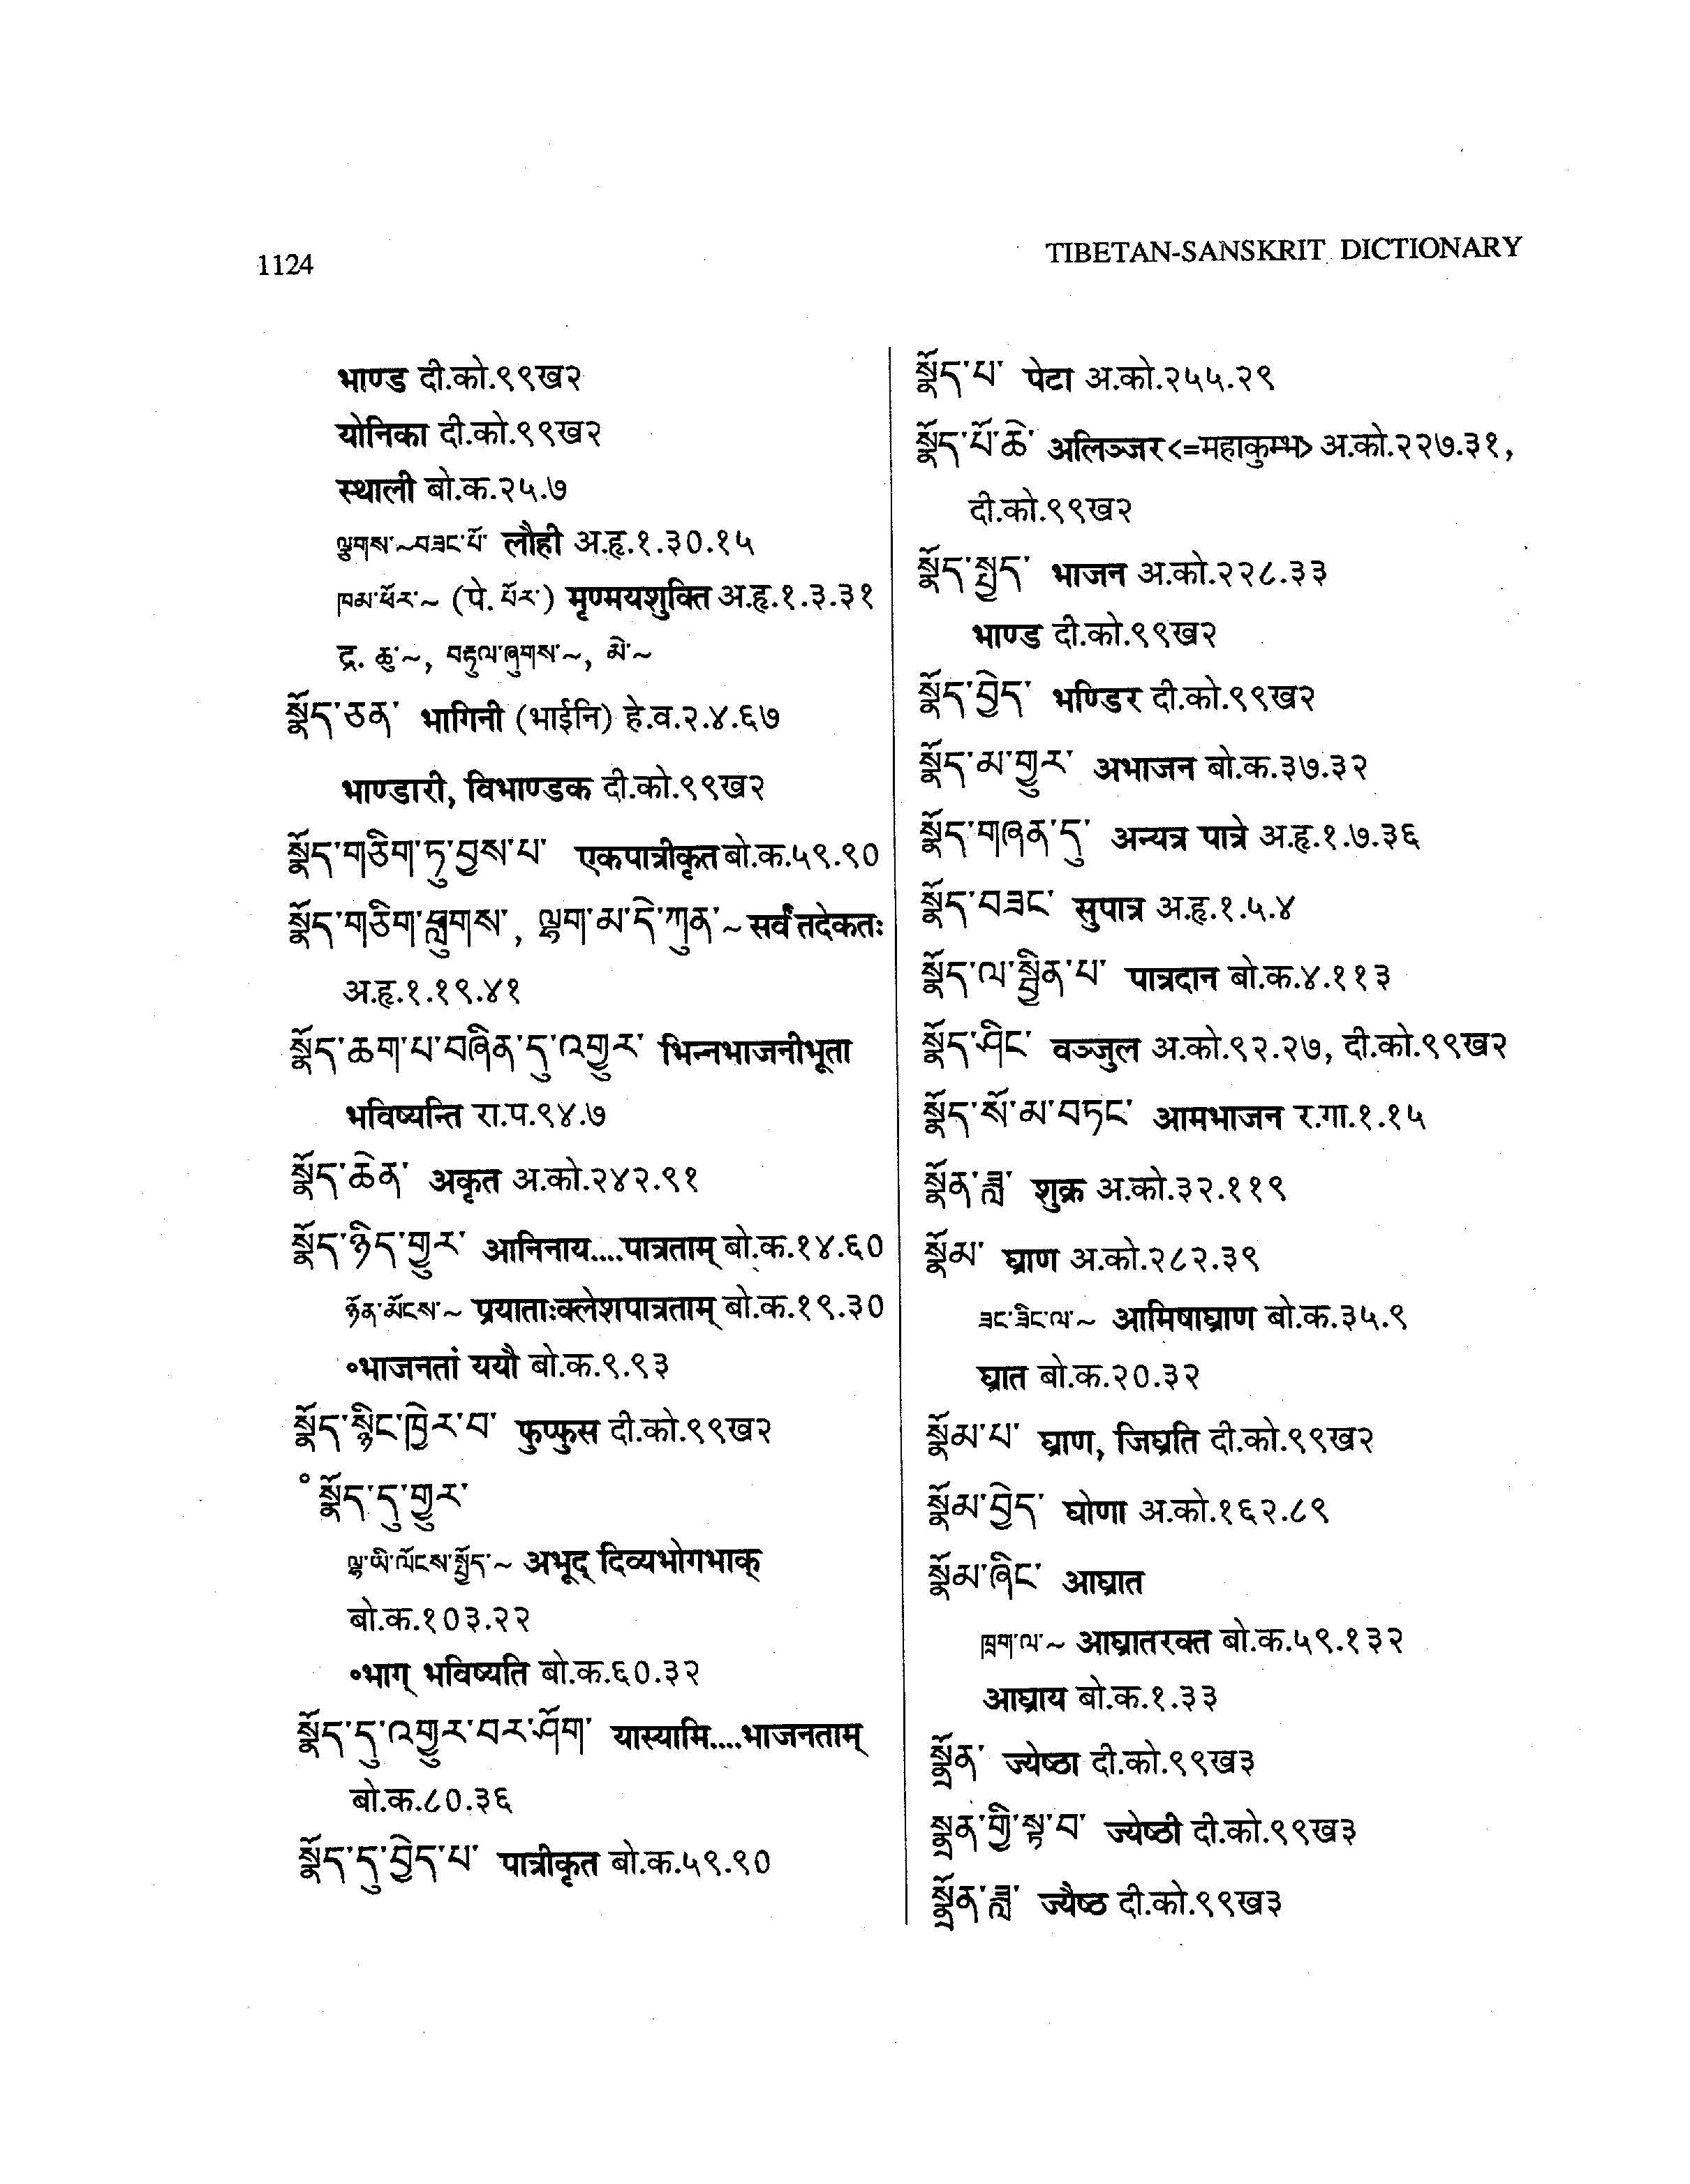 1124
TIBETAN-SANSKRIT DICTIONARY
भाण्ड दी.को.९९ख२
योनिका दी.को.९९ख२
स्थाली बो.क.२५.७
ལྕགས་~བཟང་པོ་ लौही अ.हृ.१.३०.१५
ཁམ་ཕོར་~ (पे. པོར་) मृण्मयशुक्ति अ.हृ.१.३.३१
द्र. ཆུ་~, བརྡུལ་ཞུགས་~, མེ་~
སྣོད་ཅན་ भागिनी (भाईनि) हे.व.२.४.६७
भाण्डारी, विभाण्डक दी.को.९९ख२
སྣོད་གཅིག་ཏུ་བྱས་པ་ एकपात्रीकृत बो.क.५९.९०
སྣོད་གཅིག་བླུགས་, ལྷག་མ་དེ་ཀུན་~ सर्वं तदेकतः
अ.हृ.१.१९.४१
སྣོད་ཆག་པ་བཞིན་དུ་འགྱུར་ भिन्नभाजनीभूता
भविष्यन्ति रा.प.९४.७
སྣོད་ཆེན་ अकृत अ.को.२४२.९१
སྣོད་ཉིད་གྱུར་ आनिनाय....पात्रताम् बो.क.१४.६०
ཉོན་མོངས་~ प्रयाताःक्लेशपात्रताम् बो.क.१९.३०
॰भाजनतां ययौ बो.क.९.९३
སྣོད་སྙིང་ཁྱེར་བ་ फुप्फुस दी.को.९९ख२
° སྣོད་དུ་གྱུར་
ལྷ་ཡི་ལོངས་སྤྱོད་~ अभूद् दिव्यभोगभाक्
बो.क.१०३.२२
॰भाग् भविष्यति बो.क.६०.३२
སྣོད་དུ་འགྱུར་བར་ཤོག་ यास्यामि....भाजनताम्
बो.क.८०.३६
སྣོད་དུ་བྱེད་པ་ पात्रीकृत बो.क.५९.९०
སྣོད་པ་ पेटा अ.को.२५५.२९
སྣོད་པོ་ཆེ་ अलिञ्जर<=महाकुम्भ> अ.को.२२७.३१,
दी.को.९९ख२
སྣོད་སྤྱད་ भाजन अ.को.२२८.३३
भाण्ड दी.को.९९ख२
སྣོད་བྱེད་ भण्डिर दी.को.९९ख२
སྣོད་མ་གྱུར་ अभाजन बो.क.३७.३२
སྣོད་གཞན་དུ་ अन्यत्र पात्रे अ.हृ.१.७.३६
སྣོད་བཟང་ सुपात्र अ.हृ.१.५.४
སྣོད་ལ་སྦྱིན་པ་ पात्रदान बो.क.४.११३
སྣོད་ཤིང་ वञ्जुल अ.को.९२.२७, दी.को.९९ख२
སྣོད་སོ་མ་བཏང་ आमभाजन र.गा.१.१५
སྣོན་ཟླ་ शुक्र अ.को.३२.११९
སྣོམ་ घ्राण अ.को.२८२.३९
ཟང་ཟིང་ལ་~ आमिषाघ्राण बो.क.३५.९
घ्रात बो.क.२०.३२
སྣོམ་པ་ घ्राण, जिघ्रति दी.को.९९ख२
སྣོམ་བྱེད་ घोणा अ.को.१६२.८९
སྣོམ་ཞིང་ आघ्रात
ཁྲག་ལ་~ आघ्रातरक्त बो.क.५९.१३२
आघ्राय बो.क.१.३३
སྣྲོན་ ज्येष्ठा दी.को.९९ख३
སྣྲུན་གྱི་སྟ་བ་ ज्येष्ठी दी.को.९९ख३
སྣྲོན་ཟླ་ ज्यैष्ठ दी.को.९९ख३